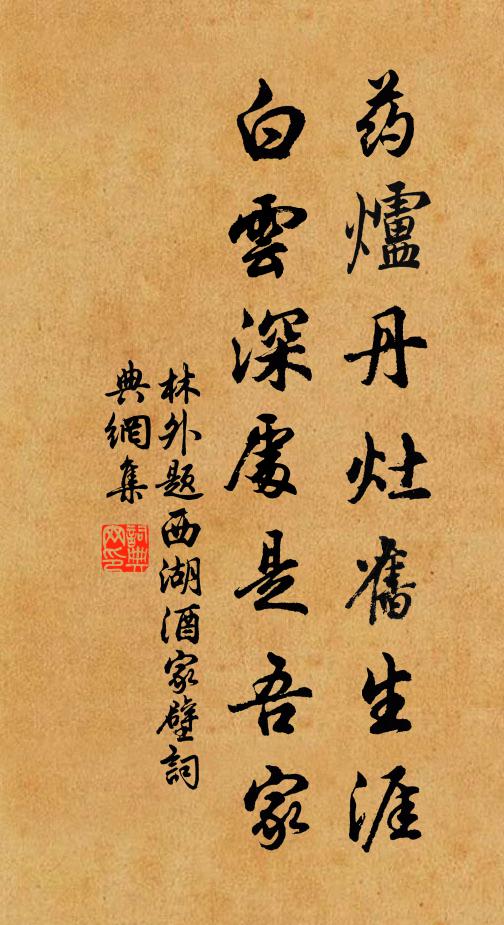 药爐丹灶舊生涯
白雲深處是吾家
林外题西湖酒家壁詞
典網集
詞典网印